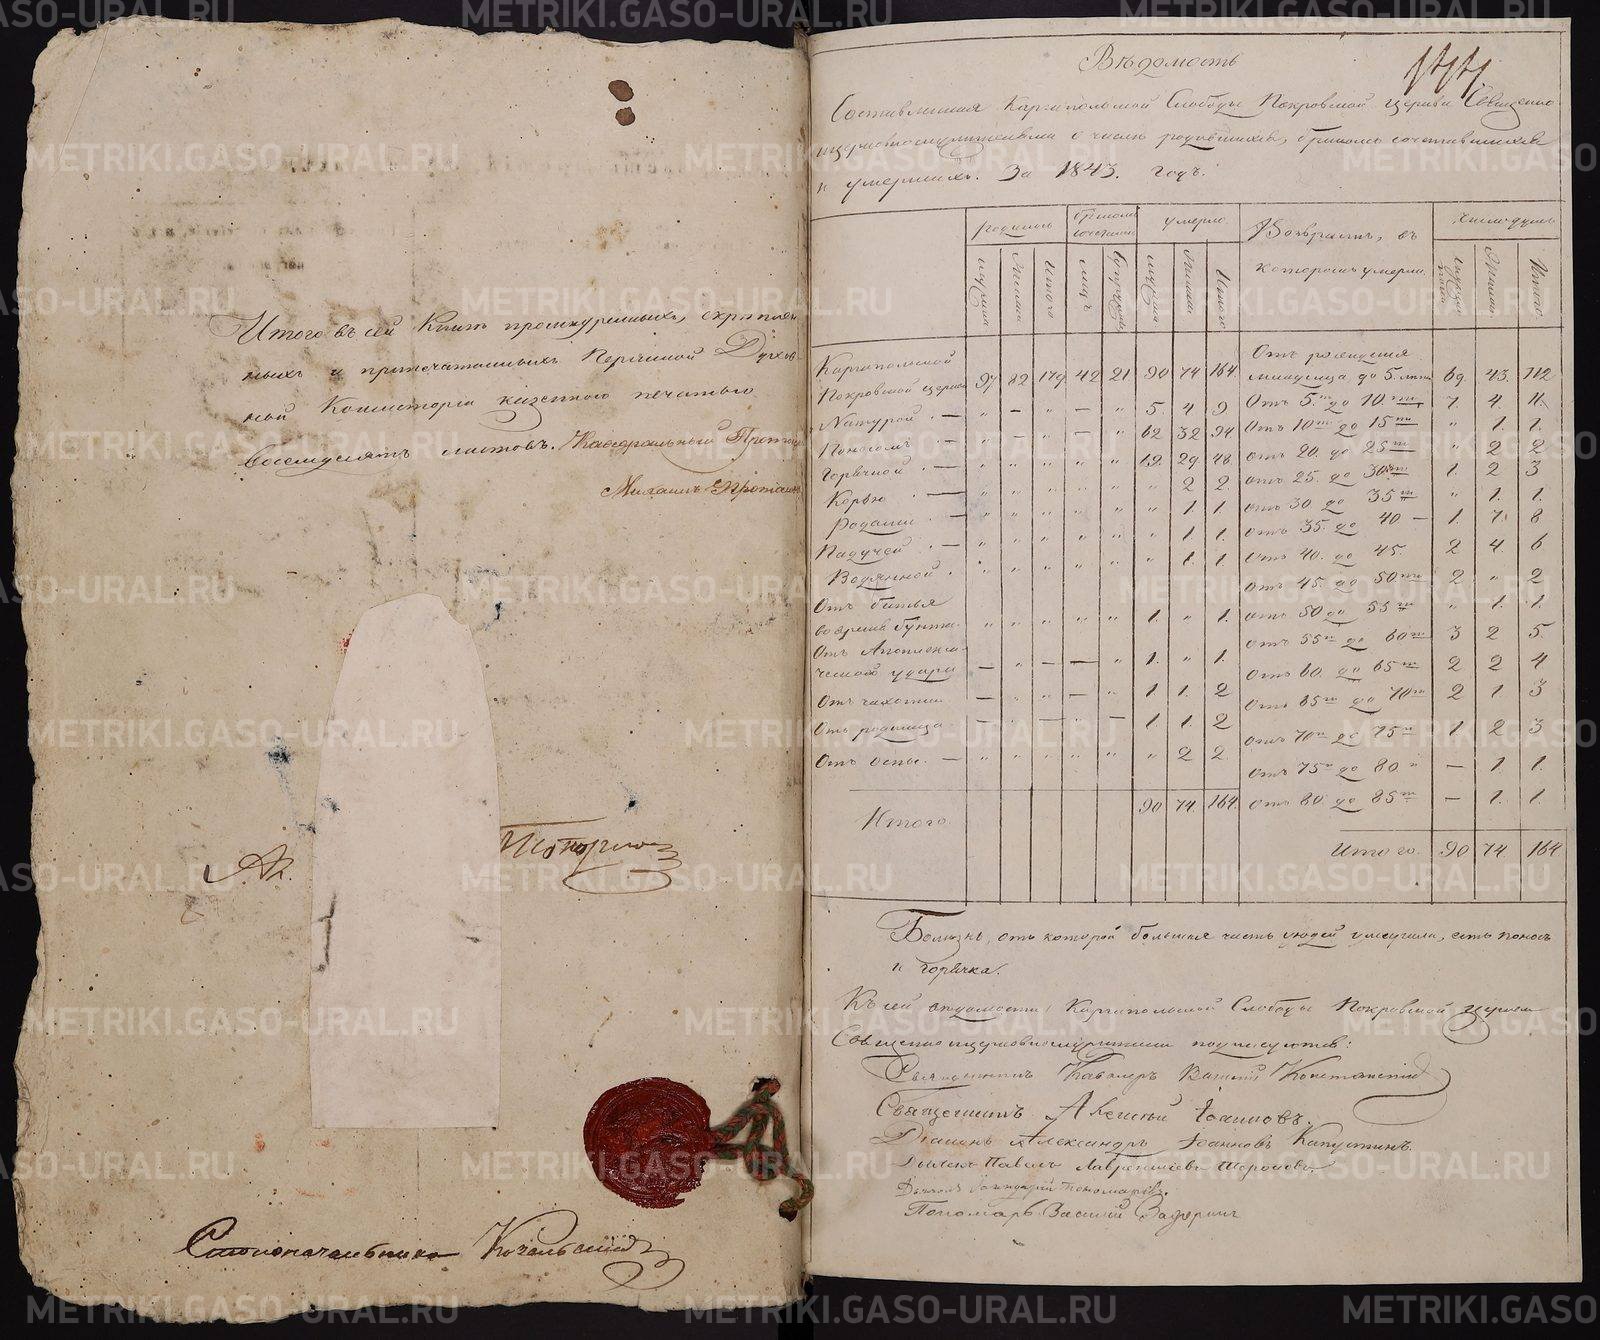 Итого въ сей Книгѣ прошнурен­ныхъ, скрѣплен
ныхъ и припечатанныхъ Пермской Духов-
ной Консисторіи казенною печатью
восемдесятъ листовъ. Каѳедральный Протоі
Михаилъ
Столоначальникъ
Вѣдомость
Составленная Каргапольской Слободы Покровской церкви Священно
церковнослужителями о числѣ родившихся, бракомъ сочетавшихся
и умершихъ. За 1843. годъ.
родилось бракомъ сочетанно умерло Возврастъ, въ которомъ умерли число душъ
мужеска женска Итого лицъ супружествъ мужеска женска Итого мужеска женска Итого
Каргапольской
Покровской церкви 97 82 179 42 21 90 74 164 Отъ рожденія
младенца до 5. лѣтъ 69 43 112
Натурой " — " — " 5. 4 9 Отъ 5. до 10 7. 4. 11.
Поносомъ 62 32 94 Отъ 10 до 15 " 1. 1.
Горячкой 19 29 48 отъ 20. до 25 " 2 2
Корью " 2 2 отъ 25. до 30 1. 2 3
Родами " 1. 1. отъ 30 до 35 " 1. 1.
Падучей " 1. 1. отъ 35. до 40 1. 7. 8
Водянной отъ 40. до 45. 2 4. 6
Отъ битья отъ 45. до 50 2 " 2
во время бунта 1. " 1. отъ 50 до 55 " 1. 1.
Отъ Апоплекси-
ческой удара 1. " 1. отъ 55 до 60 3 2 5.
Отъ чахотки 1 1. 2 отъ 60. до 65 2 2 4
Отъ родимца 1 1 2 отъ 65 до 70 2 1 3
Отъ оспы " 2 2 отъ 70 до 75 1 2 3
отъ 75 до 80 — 1. 1.
Итого 90 74 164 отъ 80 до 85 — 1. 1.
Итого. 90 74 164
Болѣзнь, отъ которой большая часть людей умерщила, есть поносъ
и горячка.
Къ сей вѣдомости Каргапольской Слободы Покровской церкви
Священноцерковнослужители подписуются:
Священникъ Кавалеръ Василій
Священникъ Алексѣй Іоанновъ
Діаконъ Александръ Іоанновъ Капустинъ.
Дьячекъ Павелъ Лаврентіевъ
Дьячекъ Пономаревъ.
Пономарь Василій